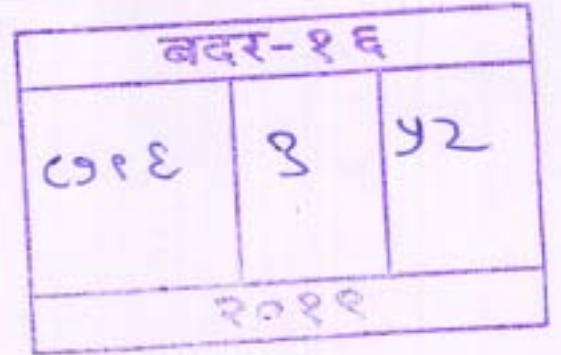 बदर-१६
७१६ १ ५२
२०११